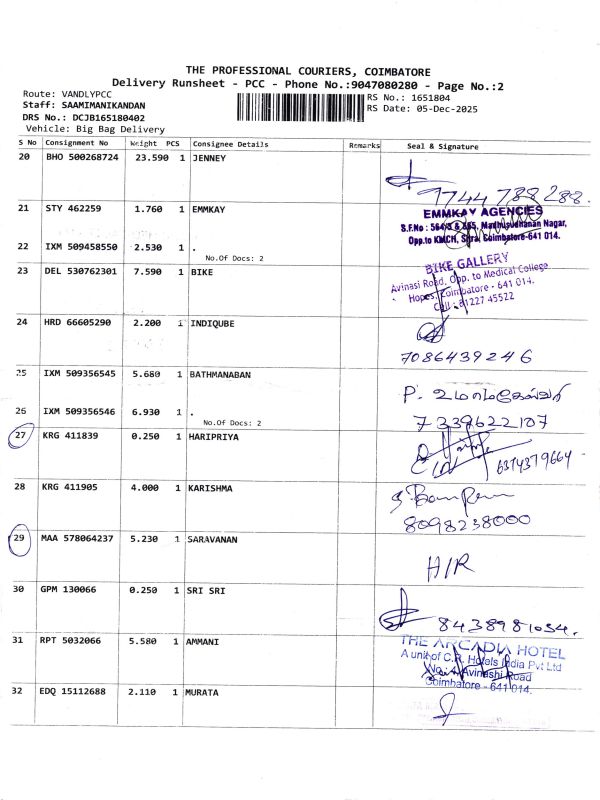 THE PROFESSIONAL COURIERS, COIMBATORE
Delivery Runsheet - PCC - Phone No.:9047080280 - Page No.:2
Route: VANDLYPCC
Staff: SAAMIMANIKANDAN
DRS No.: DCJB165180402
Vehicle: Big Bag Delivery
RS No.: 1651804
RS Date: 05-Dec-2025
S No Consignment No Weight PCS Consignee Details Remarks Seal & Signature
20 BHO 500268724 23.590 1 JENNEY
9744 788 288.
21 STY 462259 1.760 1 EMMKAY
EMMKAY AGENCIES
S.F.No : 564/3 & 565, Madhusudhanan Nagar,
Opp.to KMCH, Sitra, Coimbatore-641 014.
22 IXM 509458550 2.530 1 .
No.Of Docs: 2
23 DEL 530762301 7.590 1 BIKE
BIKE GALLERY
Avinasi Road, Opp. to Medical College
Hopes, Coimbatore - 641 014.
Cell : 81227 45522
24 HRD 66605290 2.200 1 INDIQUBE
7086439246
25 IXM 509356545 5.680 1 BATHMANABAN
P.
26 IXM 509356546 6.930 1 .
No.Of Docs: 2
7339622107
27 KRG 411839 0.250 1 HARIPRIYA
6374379664
28 KRG 411905 4.000 1 KARISHMA
8098238000
29 MAA 578064237 5.230 1 SARAVANAN
H/R
30 GPM 130066 0.250 1 SRI SRI
8438981034.
31 RPT 5032066 5.580 1 AMMANI
THE ARCADIA HOTEL
A unit of C.R. Hotels India Pvt Ltd
Avinashi Road
Coimbatore - 641 014.
32 EDQ 15112688 2.110 1 MURATA